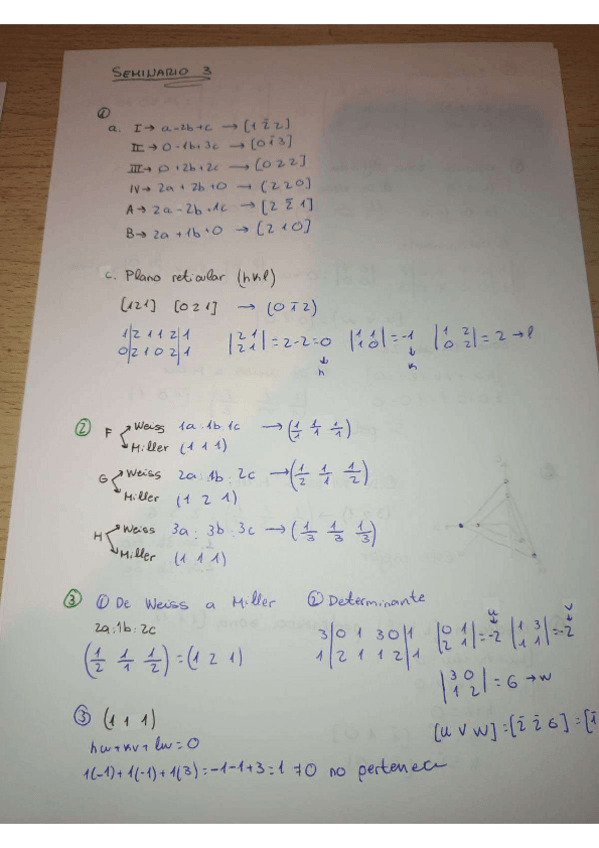 SEMINARIO 3
①
a. I → a-2b+c → [1 2̄ 2]
II → 0-1b+3c → [0 1̄ 3]
III → 0+2b+2c → [0 2 2]
IV → 2a+2b+0 → [2 2 0]
A → 2a-2b+1c → [2 2̄ 1]
B → 2a+1b+0 → [2 1 0]
c. Plano reticular (hkl)
[121] [021] → (0 1̄ 2)
1|2 1 1 2|1
0|2 1 0 2|1
|2 1; 2 1| = 2-2=0 ↓ h |1 1; 1 0| = -1 ↓ k |1 2; 0 2| = 2 → l
② F Weiss 1a:1b:1c → (1/1 1/1 1/1)
Miller (1 1 1)
G Weiss 2a:1b:2c → (1/2 1/1 1/2)
Miller (1 2 1)
H Weiss 3a:3b:3c → (1/3 1/3 1/3)
Miller (1 1 1)
③ ① De Weiss a Miller ② Determinante
2a:1b:2c
(1/2 1/1 1/2) = (1 2 1)
3|0 1 3 0|1
1|2 1 1 2|1
|0 1; 2 1| = -2 u |1 3; 1 1| = -2 v
|3 0; 1 2| = 6 → w
[u v w] = [2̄ 2̄ 6] = [1̄
③ (1 1 1)
hu+kv+lw=0
1(-1)+1(-1)+1(3)=-1-1+3=1 ≠0 no pertenece